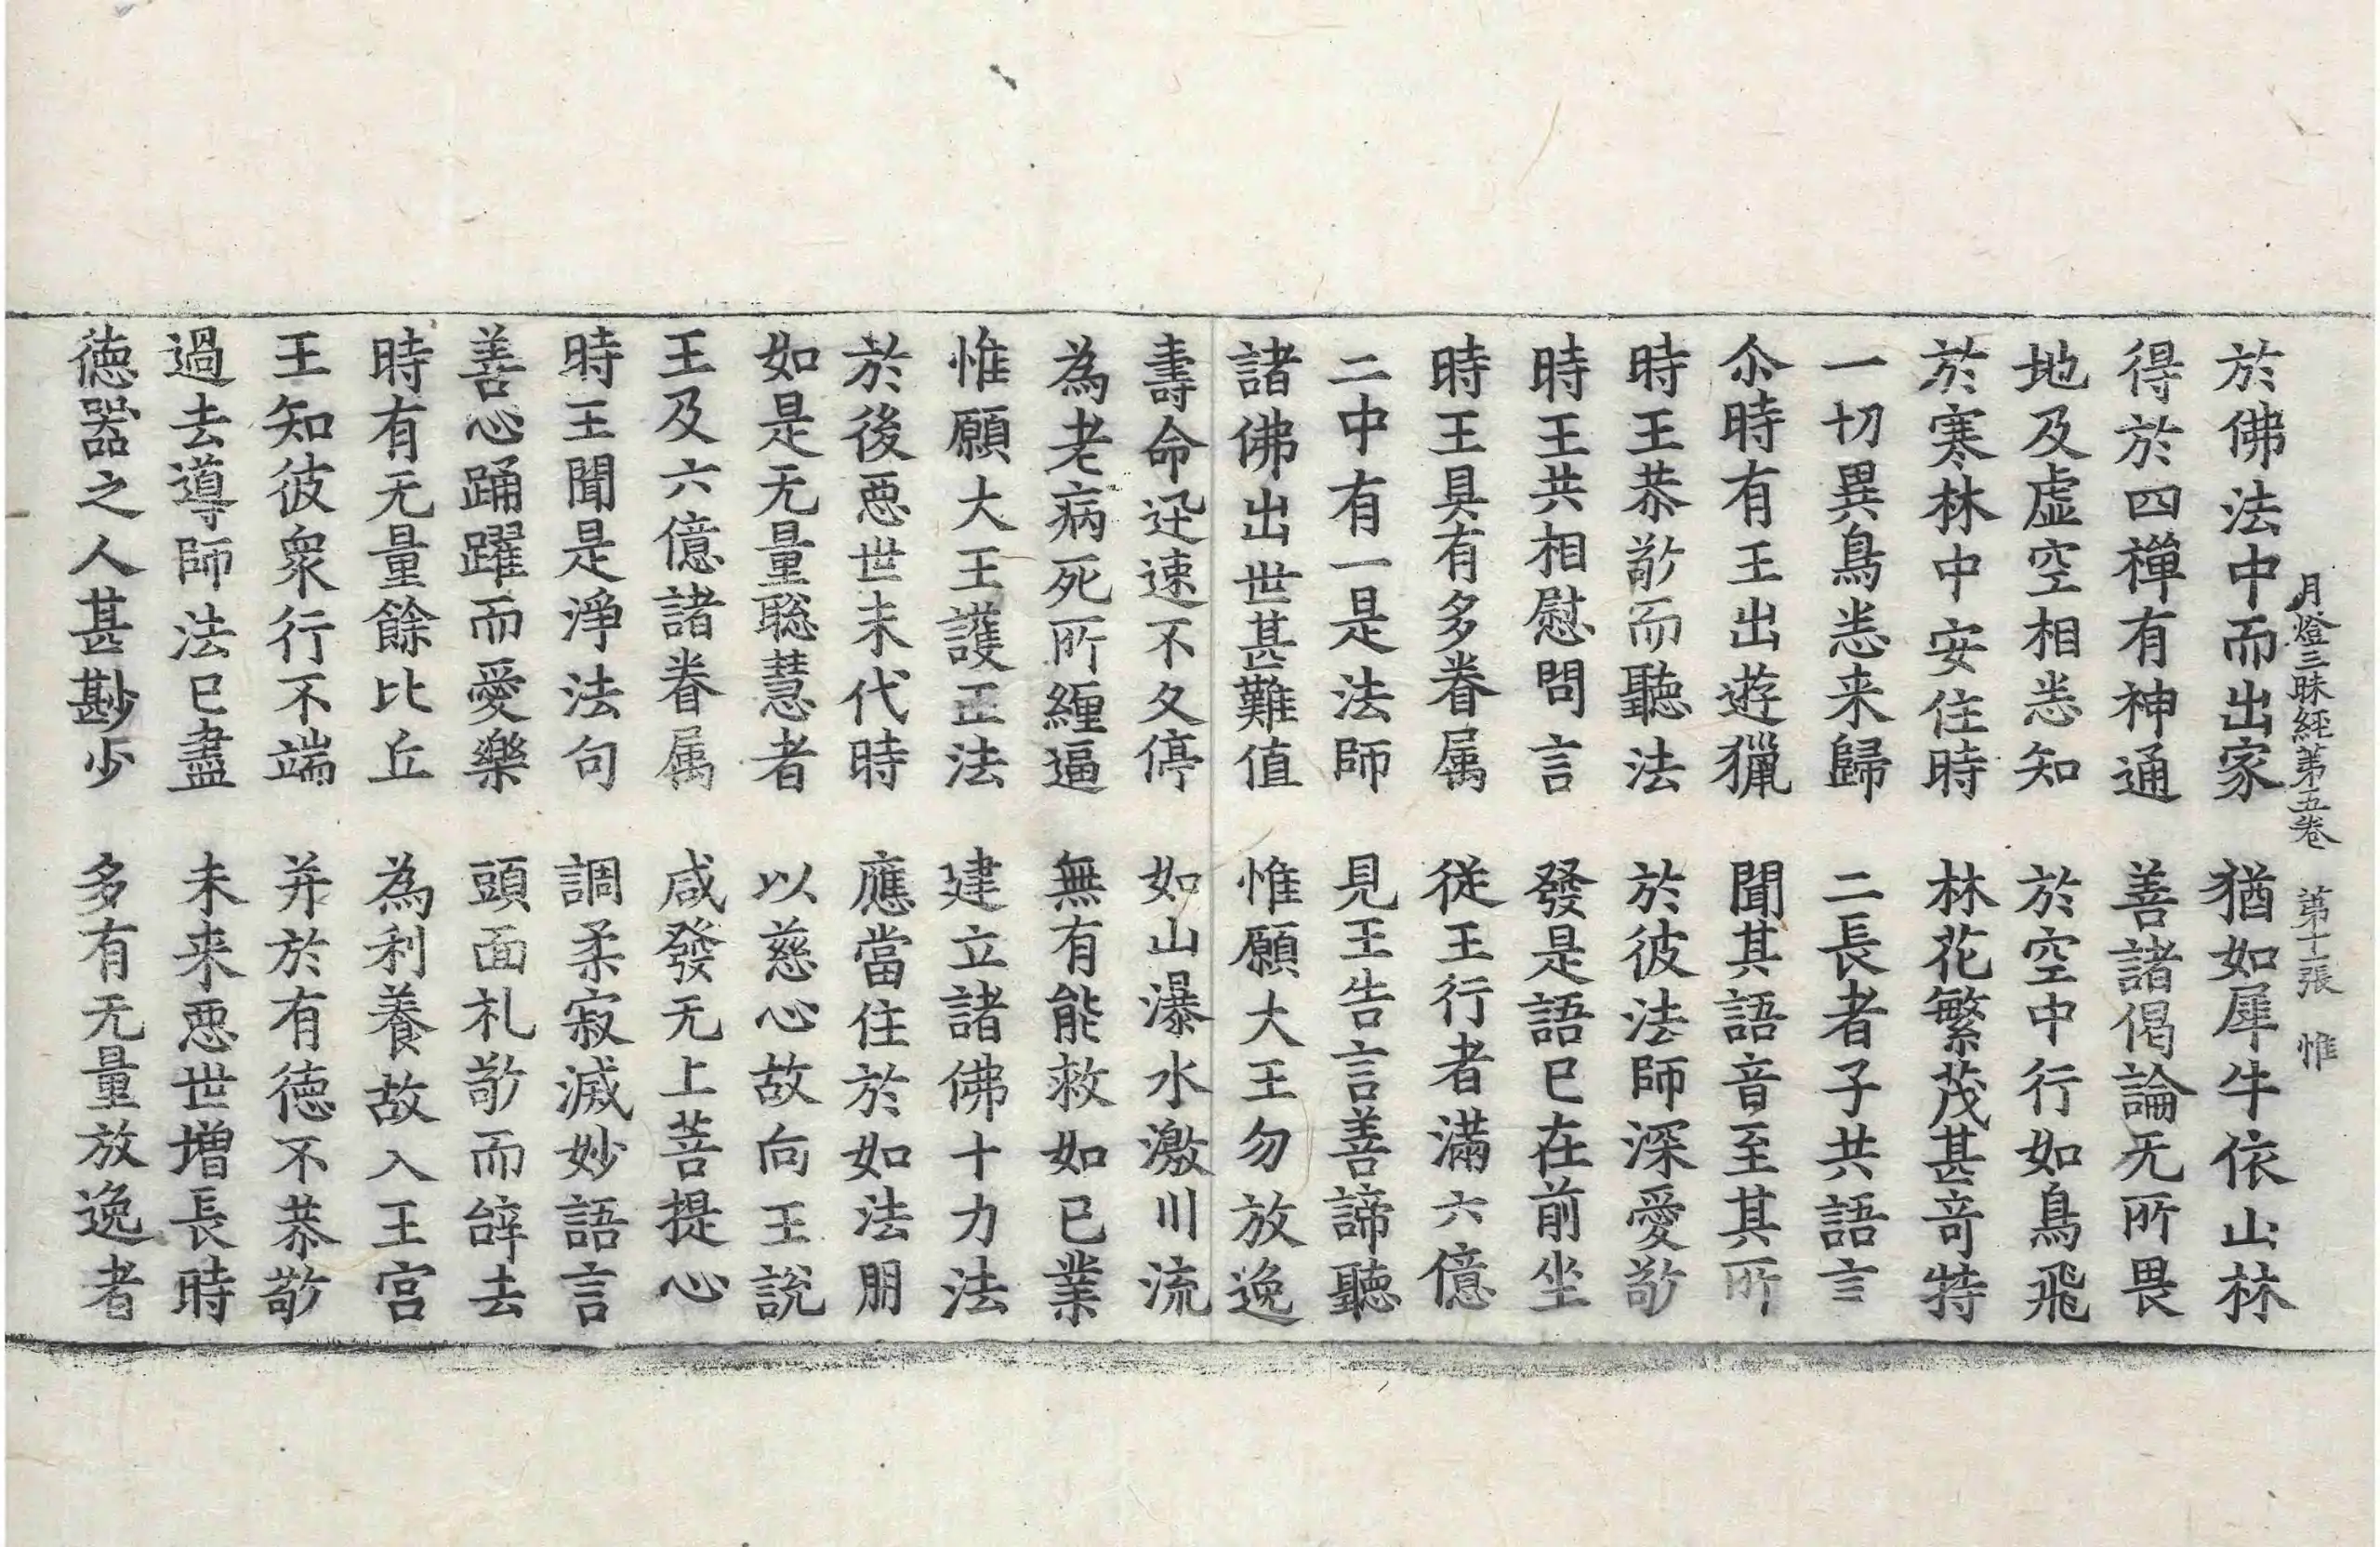 月燈三昧經第五卷　第十一張　惟
於佛法中而出家　猶如犀牛依山林
得於四禪有神通　善諸偈論无所畏
地及虛空相悉知　於空中行如鳥飛
於寒林中安住時　林花繁茂甚竒特
一切異鳥悉来歸　二長者子共語言
尒時有王出遊獵　聞其語音至其所
時王恭敬而聽法　於彼法師深愛敬
時王共相慰問言　發是語已在前坐
時王具有多眷属　従王行者滿六億
二中有一是法師　見王告言善諦聽
諸佛出世甚難值　惟願大王勿放逸
壽命迅速不久停　如山瀑水激川流
為老病死所纏逼　無有能救如已業
惟願大王護正法　建立諸佛十力法
於後惡世末代時　應當住於如法朋
如是无量聡慧者　以慈心故向王說
王及六億諸眷属　咸發无上菩提心
時王聞是淨法句　調柔寂滅妙語言
善心踊躍而愛樂　頭面礼敬而辝去
時有无量餘比丘　為利養故入王宮
王知彼衆行不端　并於有德不恭敬
過去導師法已盡　未来惡世增長時
德器之人甚尠少　多有无量放逸者